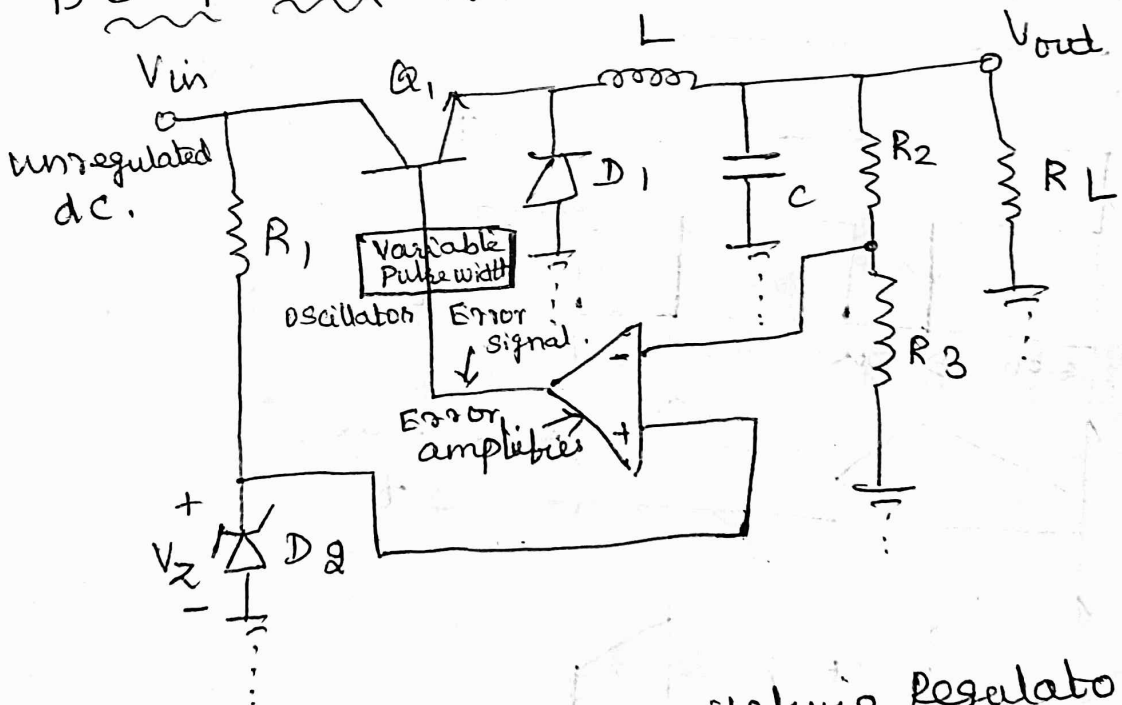 L
Vout
Vin
Q1
unregulated
dc.
R1
D1
C
R2
RL
Variable
Pulse width
oscillator
Error
signal
-
R3
Error
amplifier
+
+
Vz
D2
-
Regulato